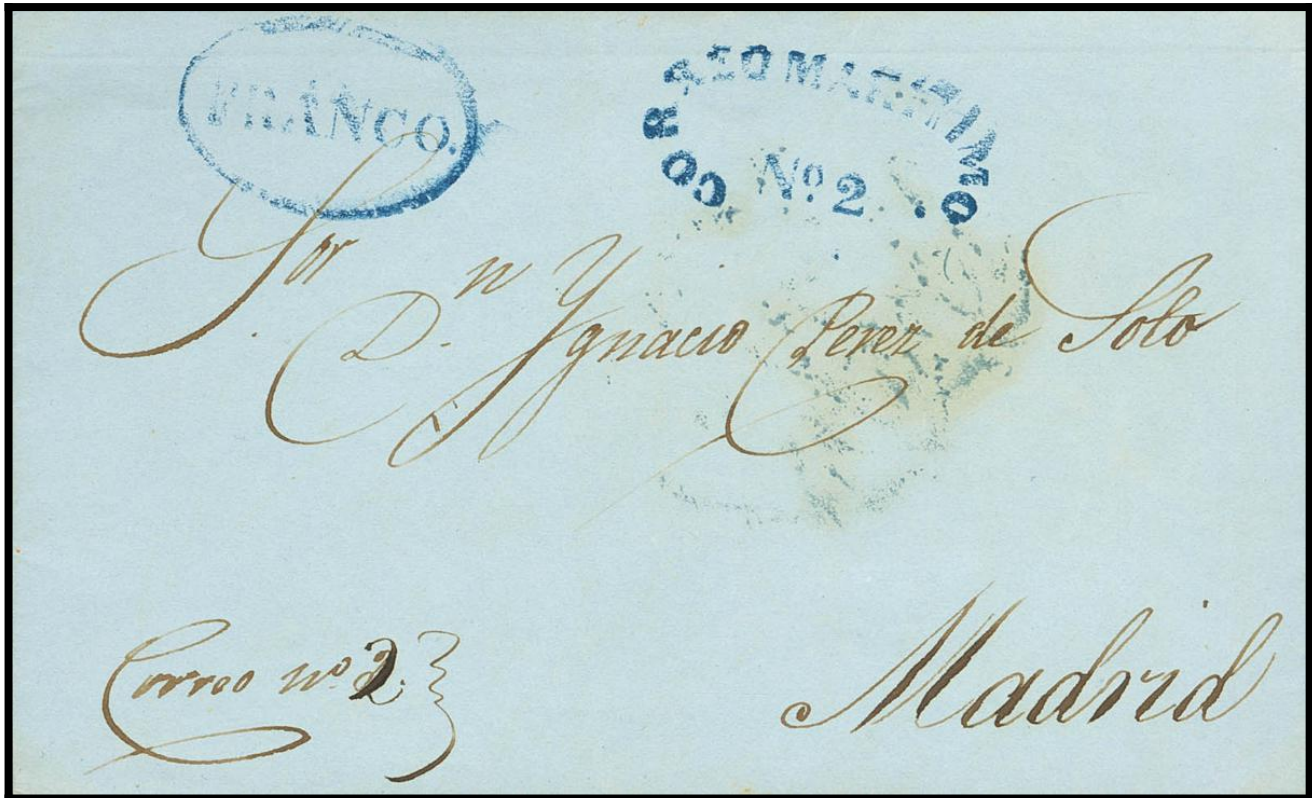 FRANCO.
CORREO MARITIMO.
Nº 2
Sor
Dn. Ygnacio Perez de Soto
Correo nº 2.
Madrid